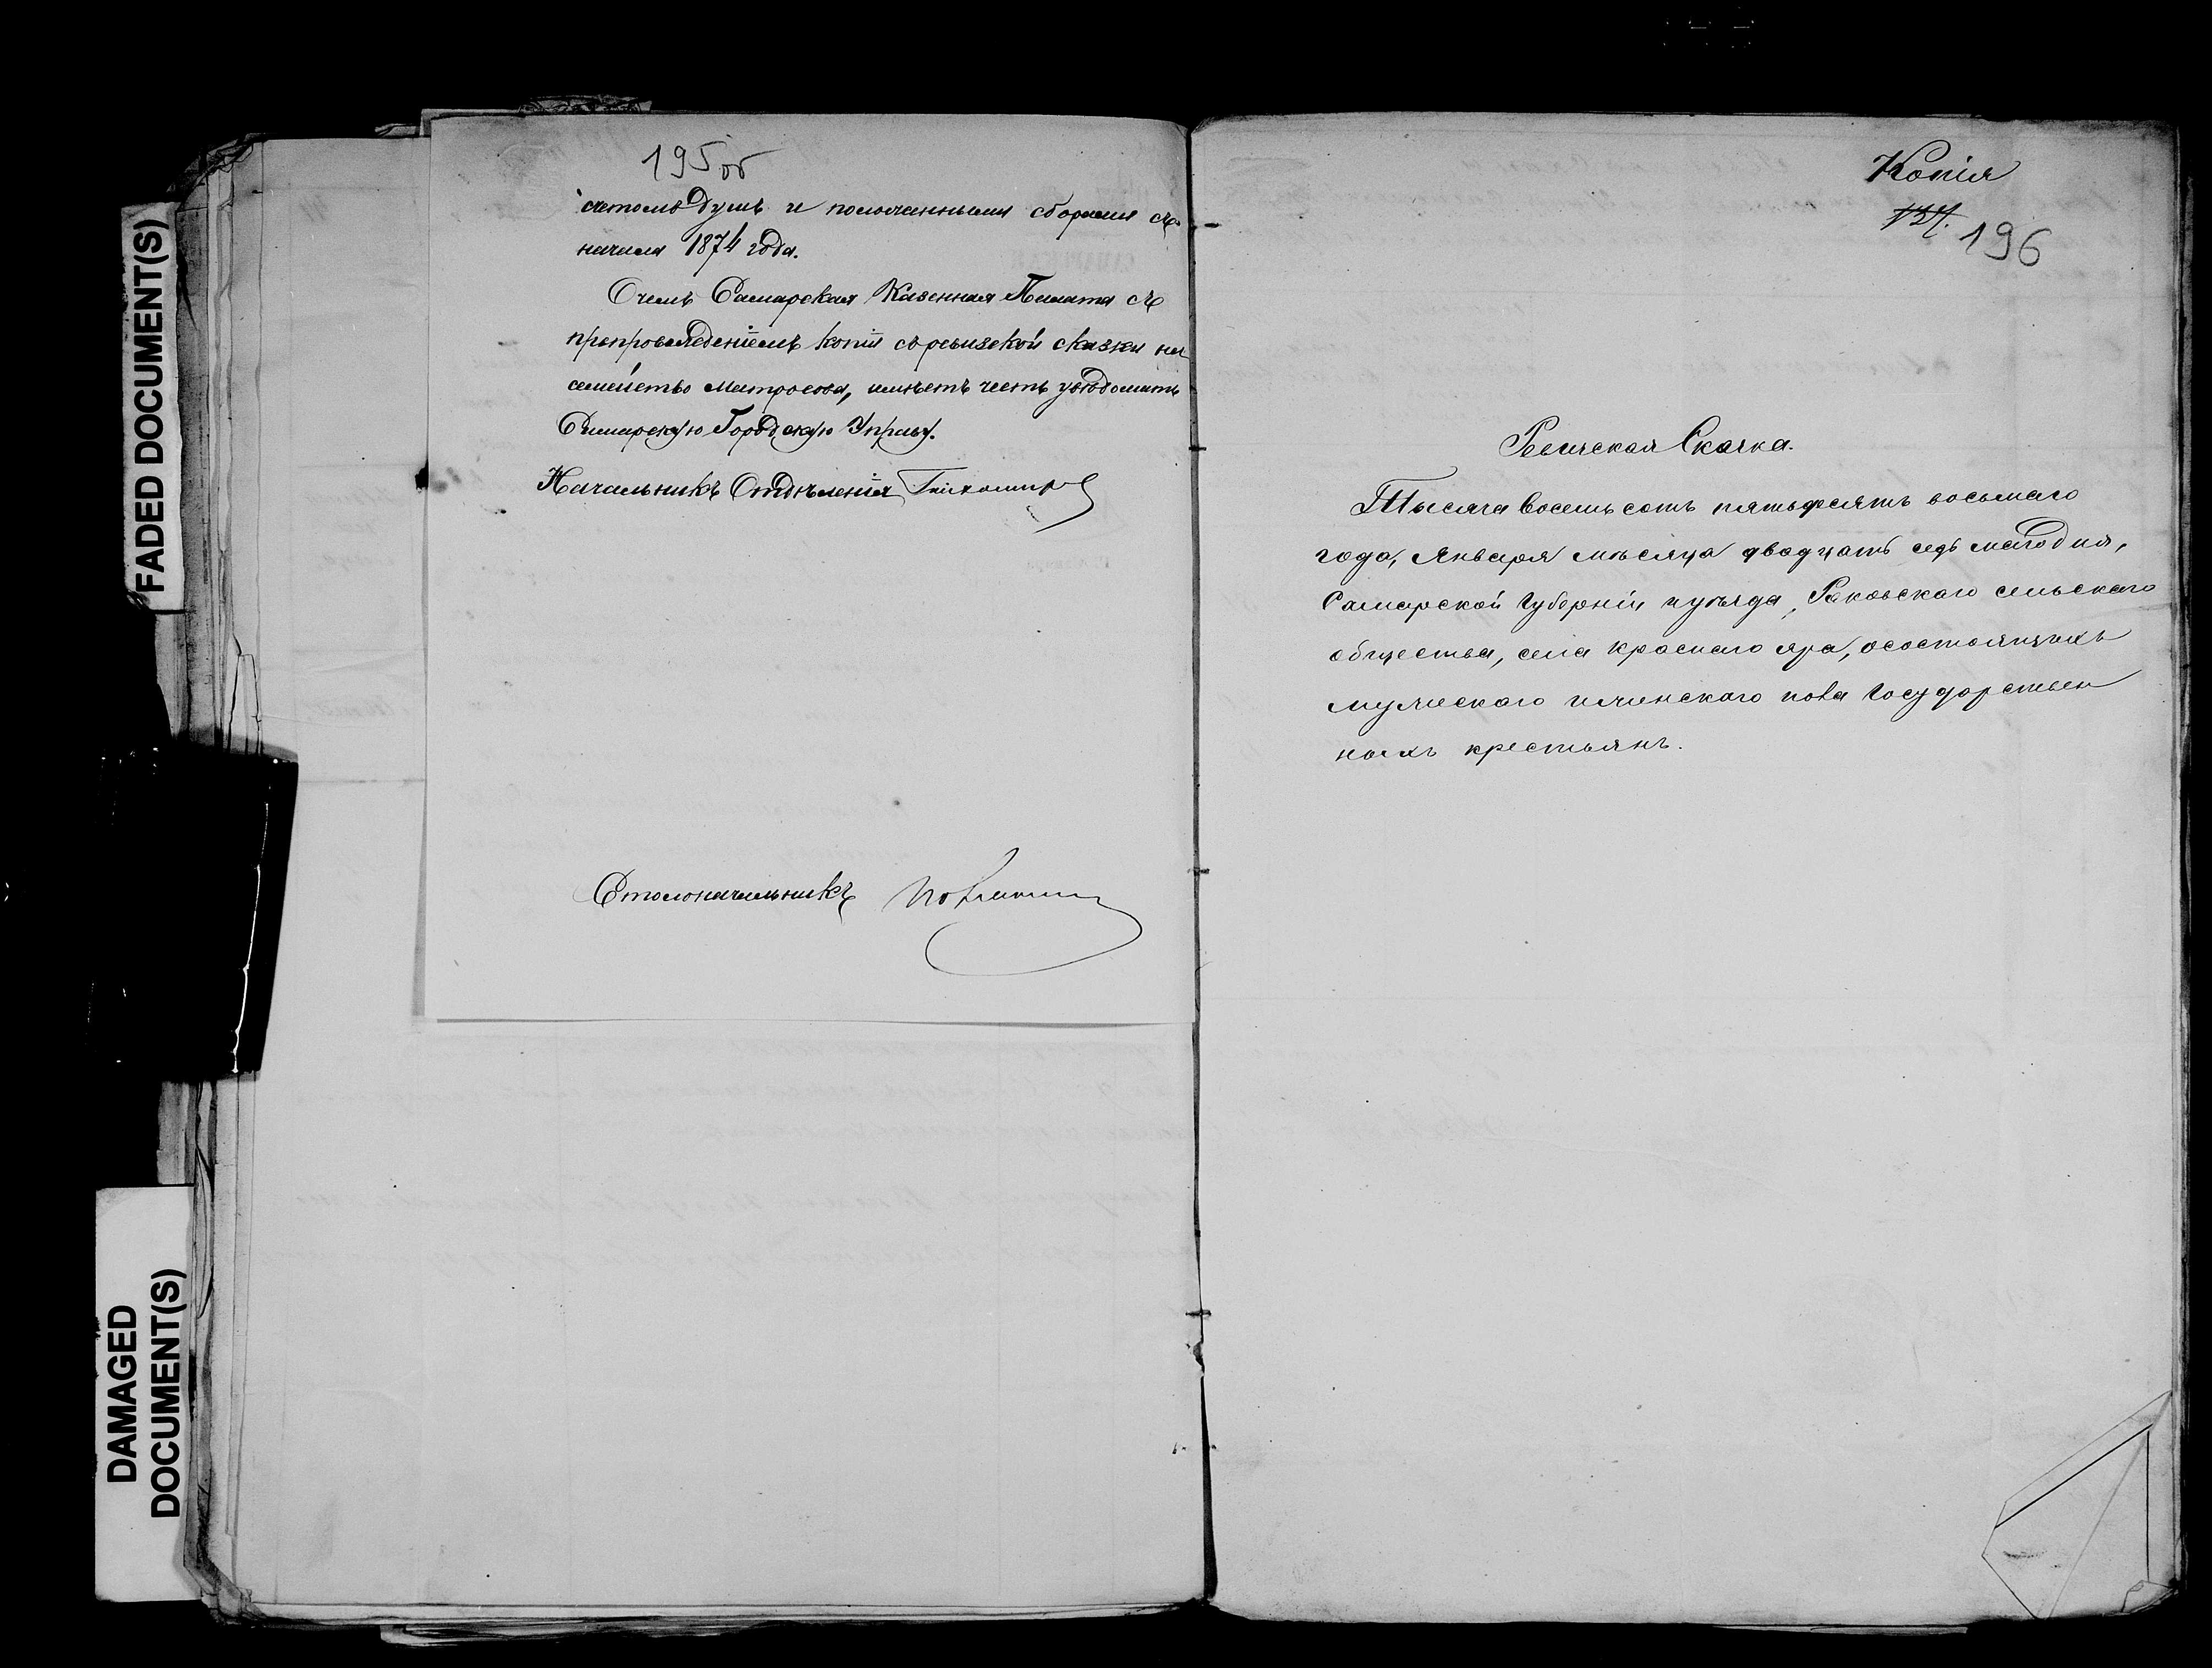 FADED DOCUMENT(S)
DAMAGED
DOCUMENT(S)
195 об
счетомъ душъ и положенными сборами съ
начала 1874 года.
О чемъ Самарская Казенная Палата съ
препровожденіемъ копіи съ ревизской сказки на
семейство Матросова, имѣетъ честь увѣдомить
Самарскую Городскую Управу.
Начальникъ Отдѣленія Тихомиров
Столоначальникъ
Копія
196
Ревизская Сказка.
Тысяча восемь сотъ пятьдесятъ восьмаго
года, Января мѣсяца двадцать седьмаго дня,
Самарской губерніи и уѣзда, Раковскаго сельскаго
общества, села Краснаго яра, о состоящихъ
мужескаго и женскаго пола государствен
ныхъ крестьянъ.